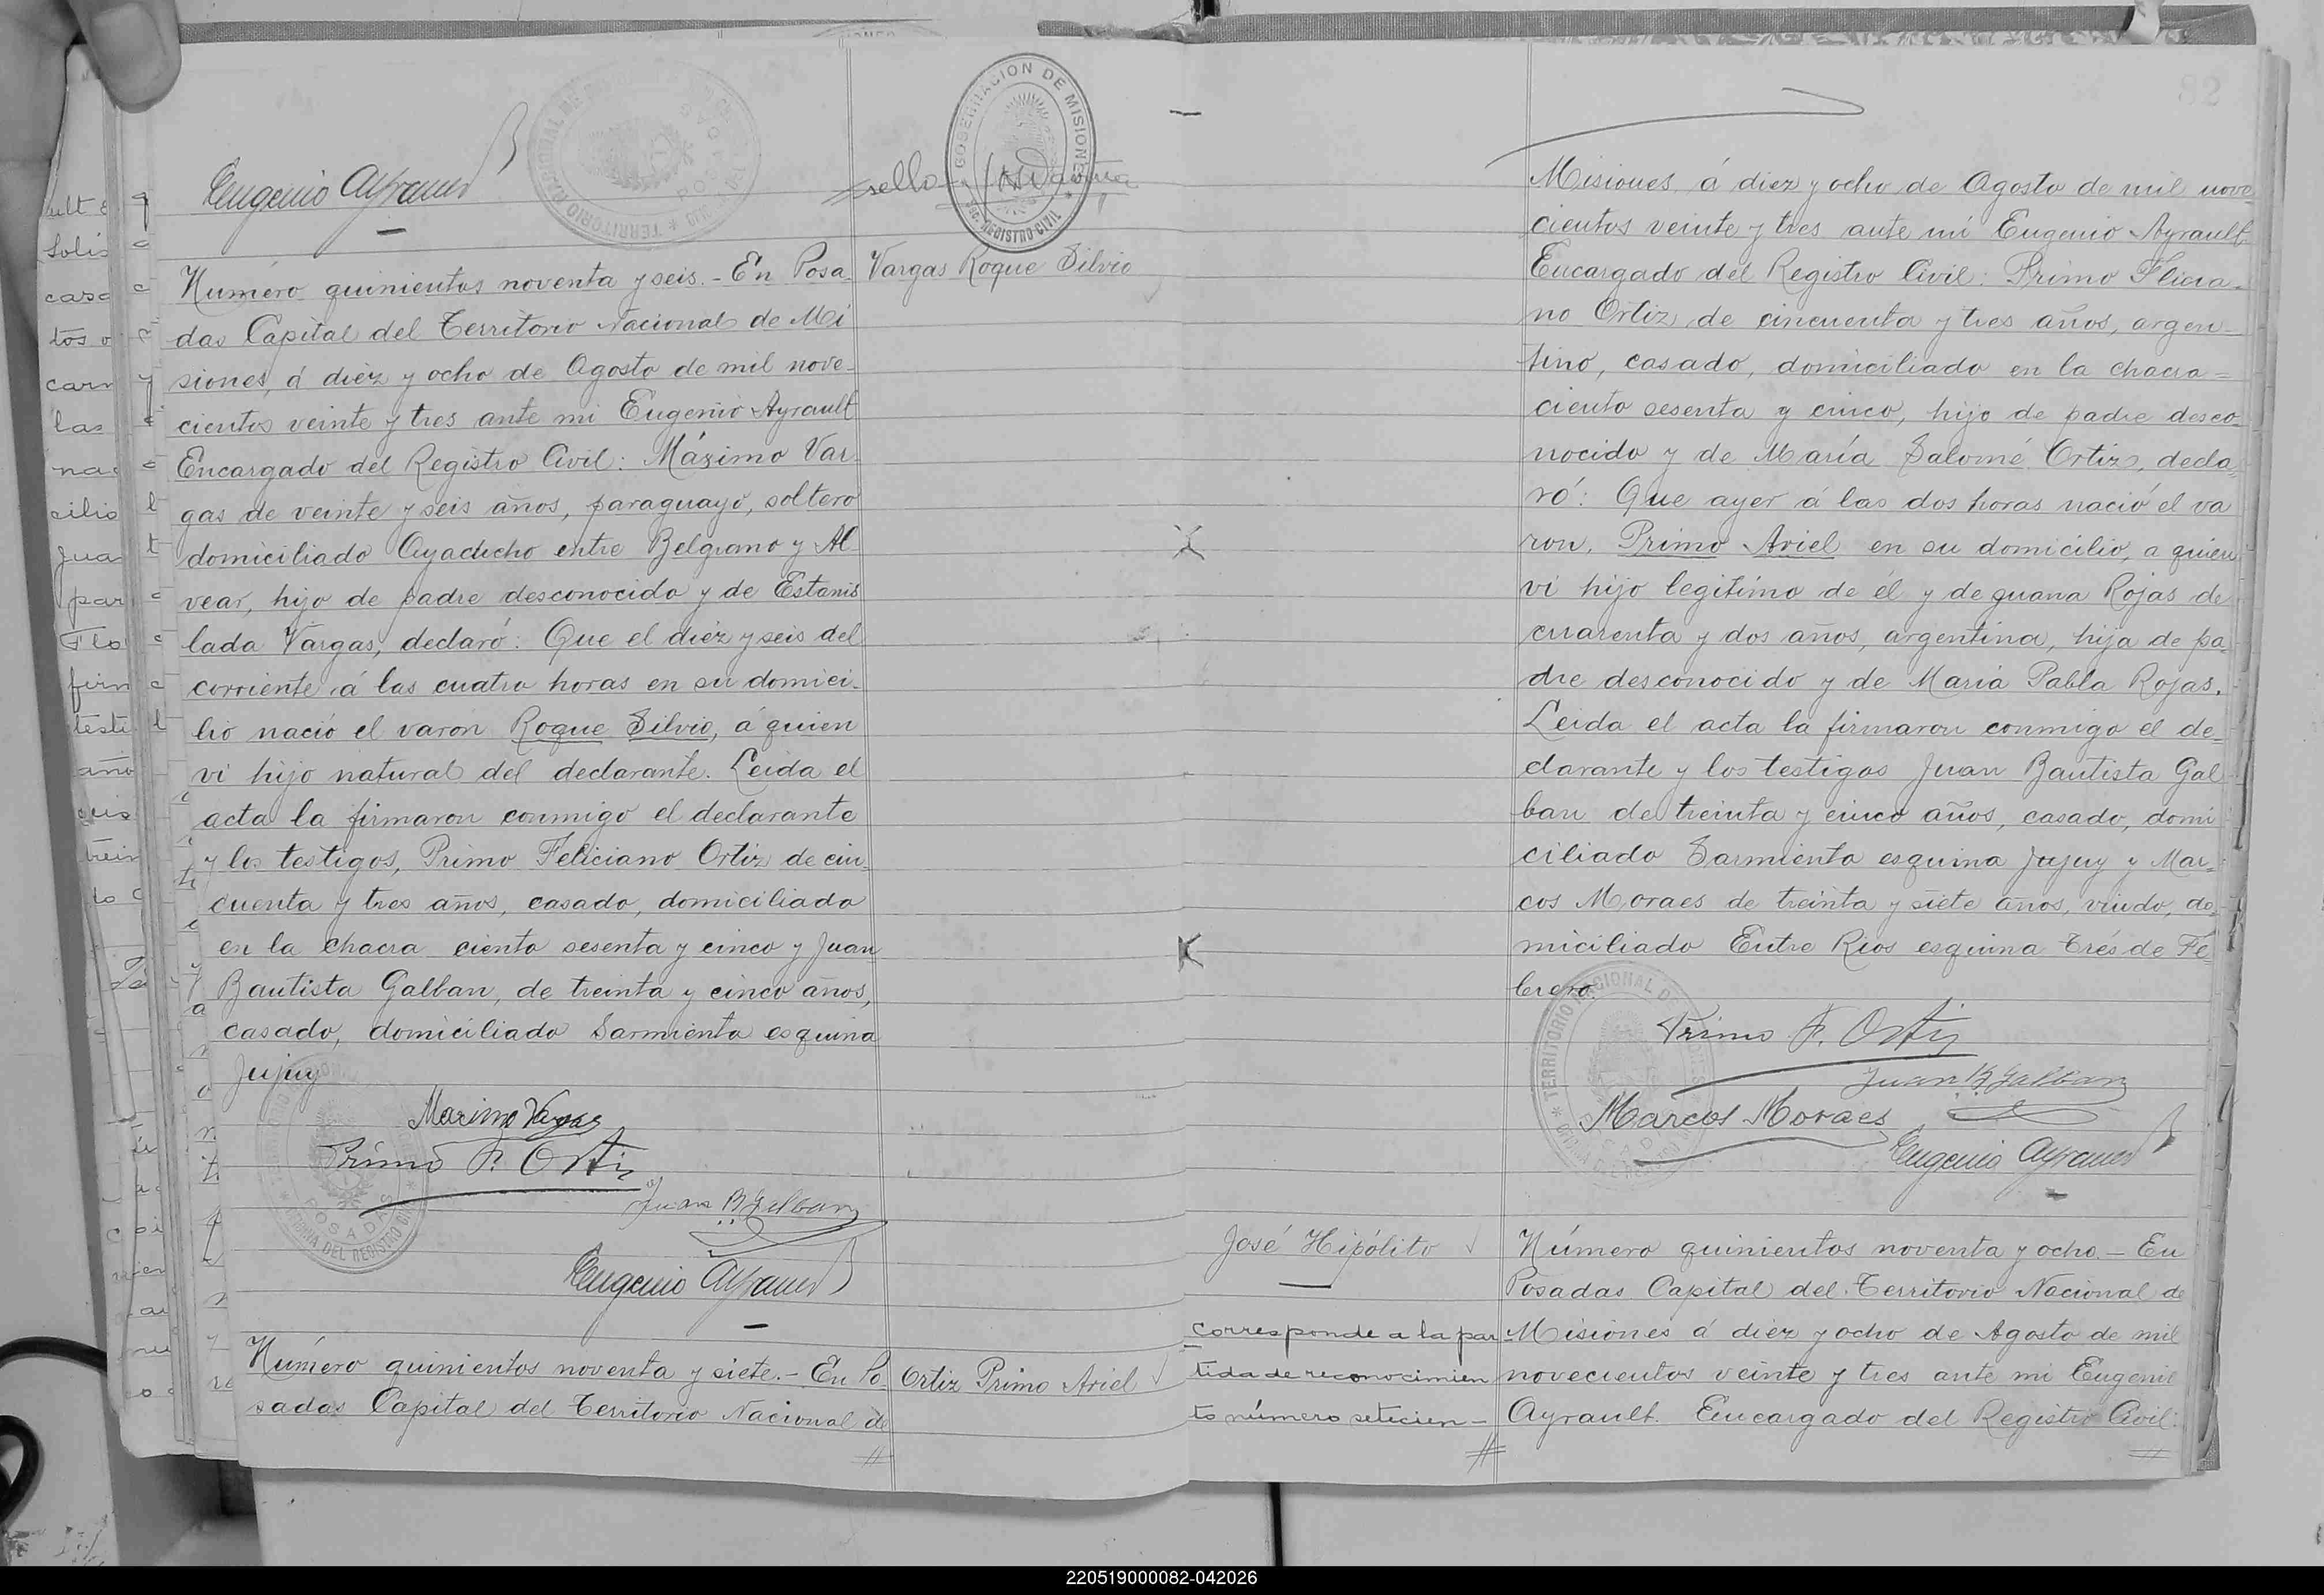 Eugenio Ayrault
sello
GOBERNACION DE MISIONES
REGISTRO CIVIL
Vargas Roque Silvio
Número quinientos noventa y seis.- En Posa-
das Capital del Territorio Nacional de Mi
siones, á diez y ocho de Agosto de mil nove-
cientos veinte y tres ante mi Eugenio Ayrault
Encargado del Registro Civil: Máximo Var-
gas de veinte y seis años, paraguayo, soltero
domiciliado Ayacucho entre Belgrano y Al
vear, hijo de padre desconocido y de Estanis
lada Vargas, declaró: Que el diez y seis del
corriente á las cuatro horas en su domici-
lio nació el varón Roque Silvio, á quien
vi hijo natural del declarante. Leida el
acta la firmaron conmigo el declarante
y los testigos, Primo Feliciano Ortiz de cin-
cuenta y tres años, casado, domiciliado
en la chacra ciento sesenta y cinco y Juan
Bautista Galban, de treinta y cinco años,
casado, domiciliado Sarmiento esquina
Jujuy
Maximo Vargas
Primo F. Ortiz
Juan B Galban
Eugenio Ayrault
POSADAS
OFICINA DEL REGISTRO CIVIL
Número quinientos noventa y siete.- En Po
sadas Capital del Territorio Nacional de
Ortiz Primo Ariel
82
Misiones á diez y ocho de Agosto de mil nove
cientos veinte y tres ante mi Eugenio Ayrault
Encargado del Registro Civil: Primo Flicia-
no Ortiz de cincuenta y tres años, argen-
tino, casado, domiciliado en la chacra=
ciento sesenta y cinco, hijo de padre desco-
nocido y de María Salomé Ortiz, decla-
ró: Que ayer á las dos horas nació el va
ron, Primo Ariel en su domicilio, a quien
vi hijo legitimo de él y de Juana Rojas de
cuarenta y dos años, argentina, hija de pa-
dre desconocido y de María Pabla Rojas.
Leida el acta la firmaron conmigo el de-
clarante y los testigos Juan Bautista Gal
ban de treinta y cinco años, casado, domi
ciliado Sarmiento esquina Jujuy y Mar-
cos Moraes de treinta y siete años, viudo, do-
miciliado Entre Rios esquina Trés de Fe-
brero
TERRITORIO NACIONAL DE MISIONES
Primo F. Ortiz
Juan B Galban
Marcos Moraes
Eugenio Ayrault
José Hipólito
Número quinientos noventa y ocho.- En
Posadas Capital del Territorio Nacional de
Misiones á diez y ocho de Agosto de mil
novecientos veinte y tres ante mi Eugenio
Ayrault. Encargado del Registro Civil:
corresponde a la par-
tida de reconocimien
to número setecien-
220519000082-042026